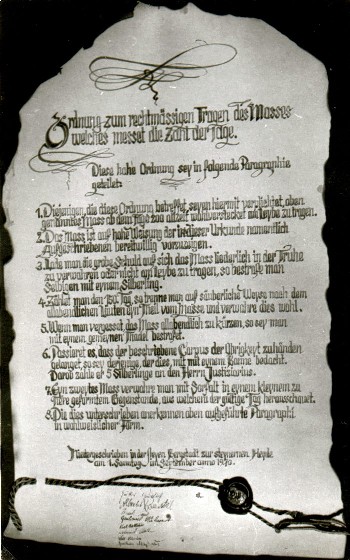 Ordnung zum rechtmässigen Tragen des Masses
welches messet die Zahl der Tage.
Diese hohe Ordnung sey in folgende Paragraphie
geteilet:
1. Diejenigen, die diese Ordnung betreffet, seyen hiermit verpflichtet, oben
genanntes Mass ab dem Tage 200 allzeit wohlverstecket am Leybe zu tragen.
2. Das Mass ist auf hohe Weisung der in dieser Urkunde namentlich
Aufgeschriebenen bereitwillig vorzuzeigen.
3. Lade man die grobe Schuld auf sich das Mass liederlich in der Truhe
zu verwahren oder nicht am Leybe zu tragen, so bestrafe man
Selbigen mit eynem Silberling.
4. Zählet man den Tag, so trenne man auf säuberliche Weyse nach dem
allabendlichen Läuten den Teil vom Masse und verwahre dies wohl.
5. Wenn man vergesset, das Mass allabendlich zu kürzen, so sey man
mit eynem gemeynen Tadel bestraft.
6. Passieret es, dass der beschriebene Corpus der Obrigkeyt zuhänden
gelanget, so sey derjenige, der dies, mit
bedacht.
Darob zahle er 5 Silberlinge an den Herrn Justiziarius.
7. Eyn zweytes Mass verwahre man mit Sorgfalt in eynem kleynem zu
geformtem Gegenstande, aus welchem der gültige Tag herausschauet.
8. Die dies unterschrieben anerkennen oben aufgeführte Paragraphi
in wohlweislicher Form.
Niedergeschrieben in der freyen Bergstadt zur steynernen Heyde
am 1. Samstag im September anno 1970.